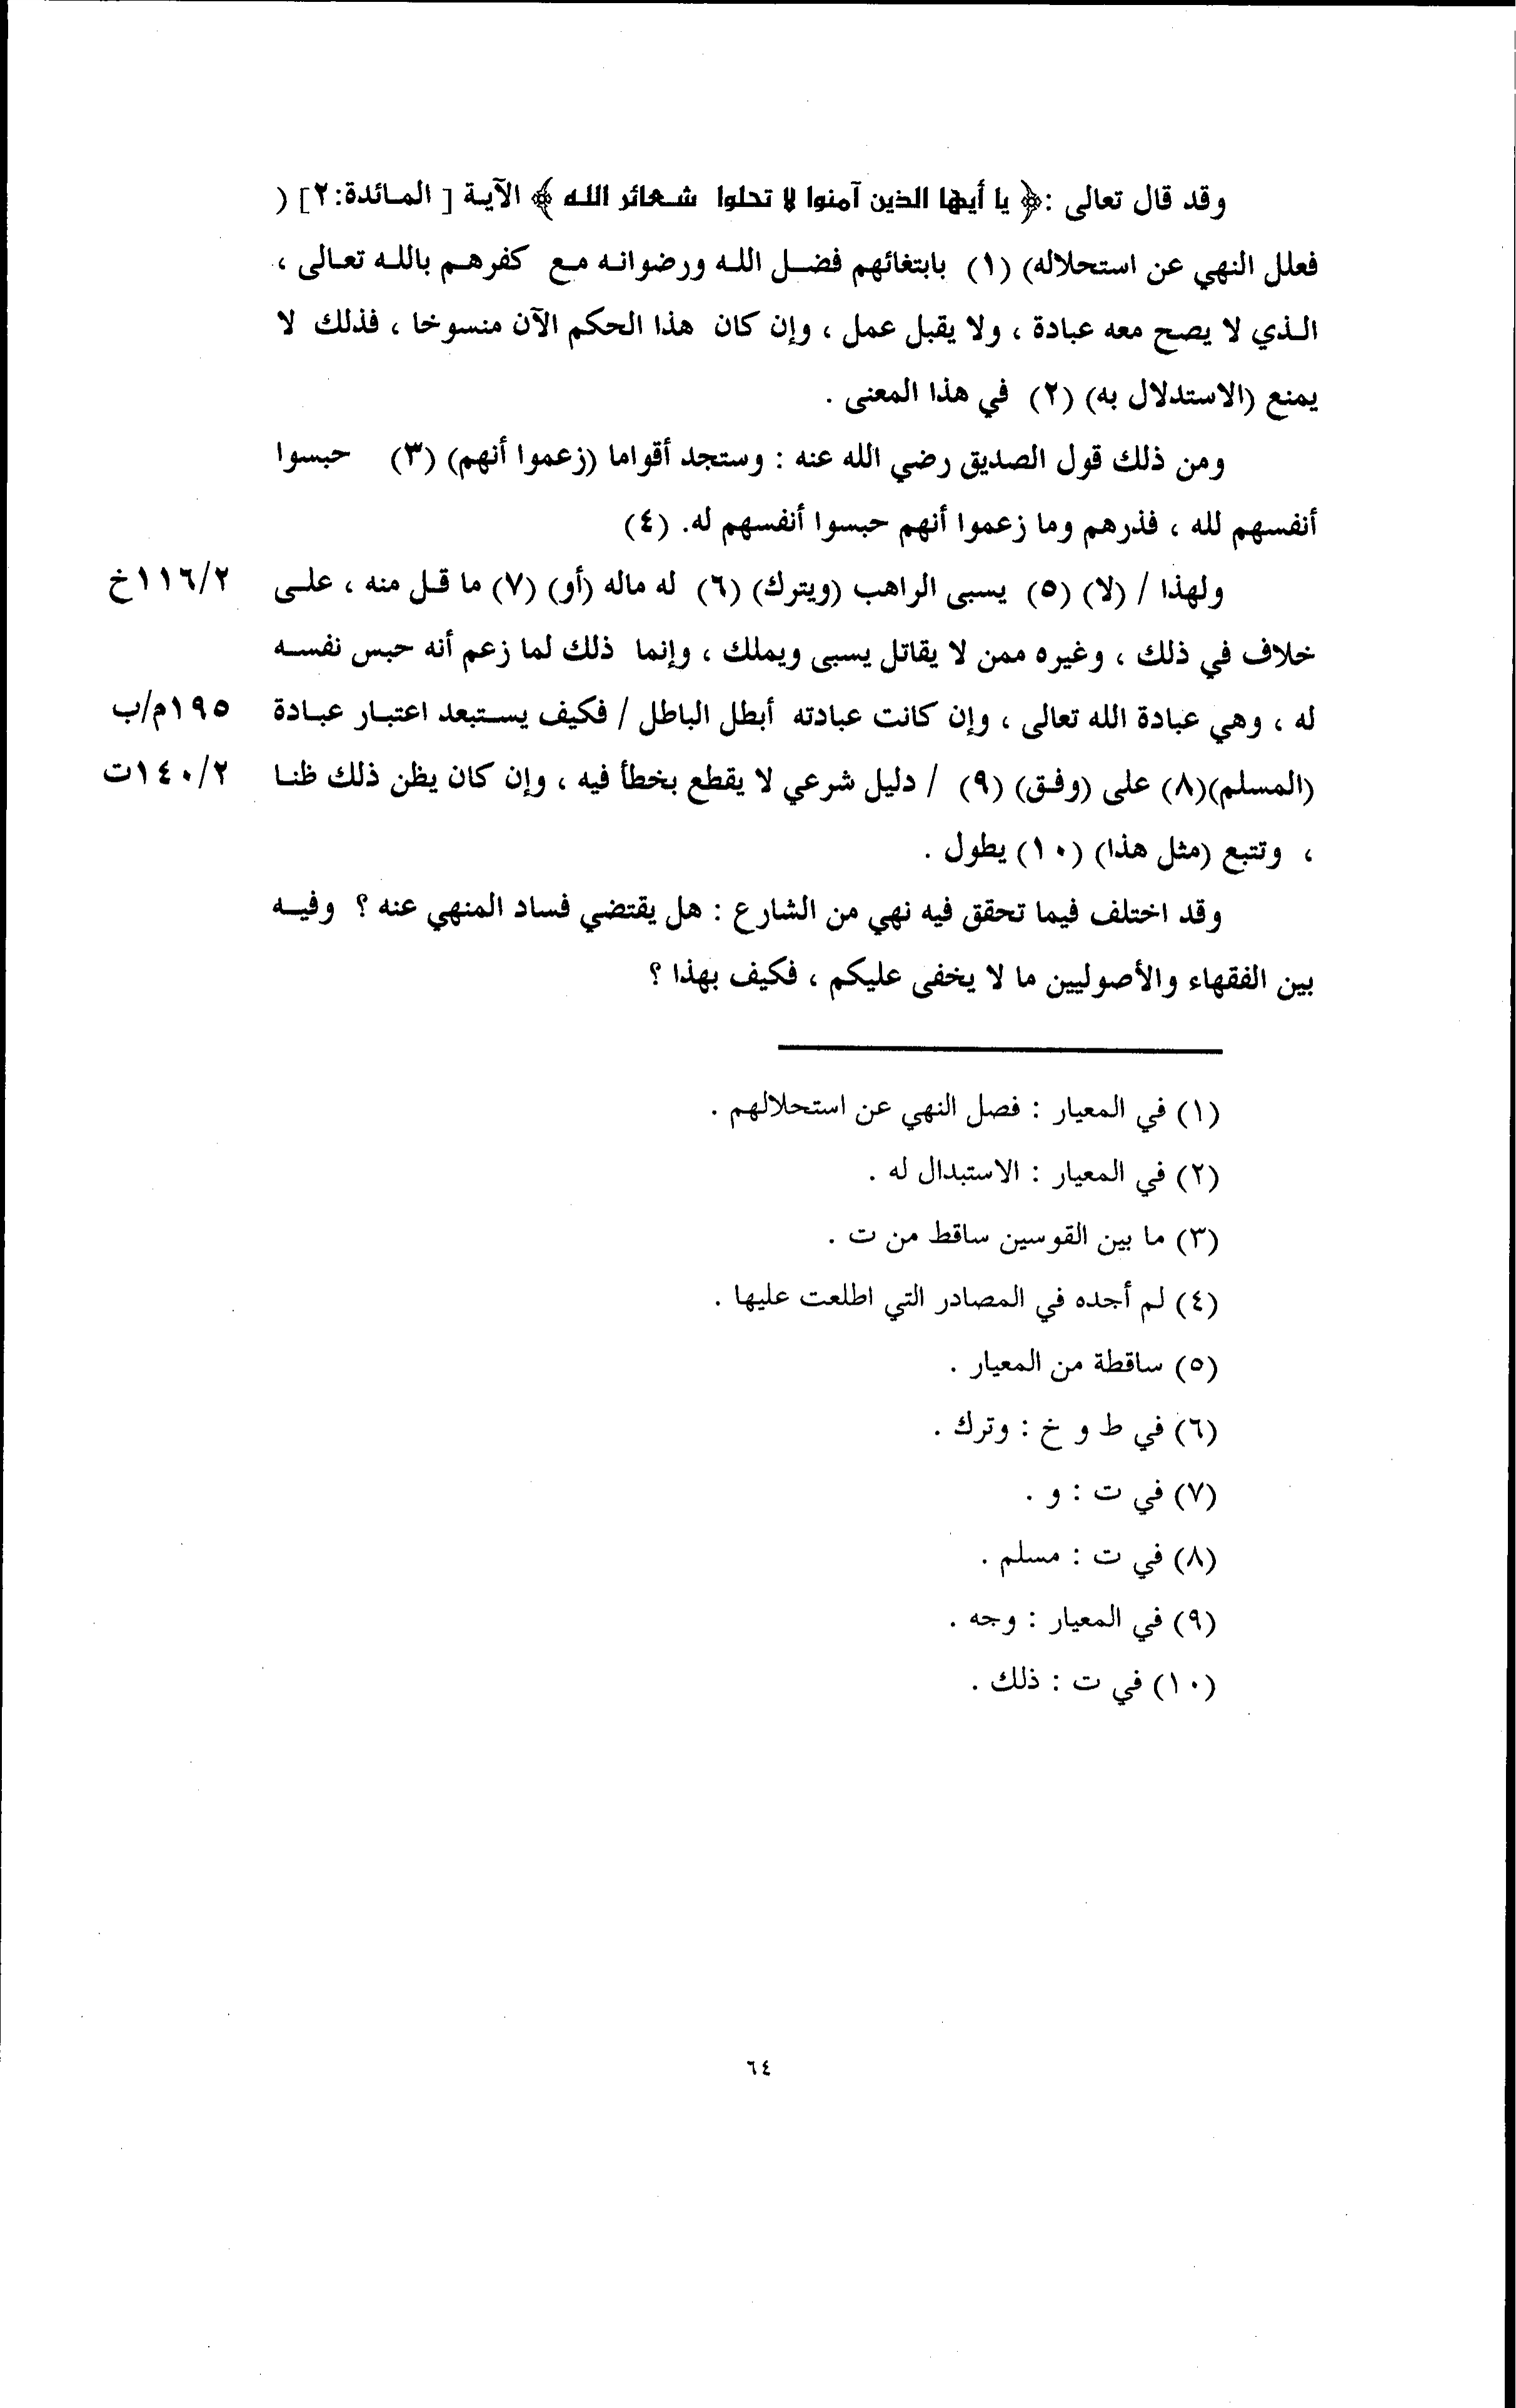 وقد قال تعالى :﴿ يا أيها الذين آمنوا لا تحلوا شعائر الله ﴾ الآية [ المائدة:٢] (
فعلل النهي عن استحلاله) (١) بابتغائهم فضل الله ورضوانه مع كفرهم بالله تعالى ،
الذي لا يصح معه عبادة ، ولا يقبل عمل ، وإن كان هذا الحكم الآن منسوخا ، فذلك لا
يمنع (الاستدلال به) (٢) في هذا المعنى .
ومن ذلك قول الصديق رضي الله عنه : وستجد أقواما (زعموا أنهم) (٣) حبسوا
أنفسهم لله ، فذرهم وما زعموا أنهم حبسوا أنفسهم له. (٤)
ولهذا / (لا) (٥) يسبى الراهب (ويترك) (٦) له ماله (أو) (٧) ما قل منه ، على ١١٦/٢خ
خلاف في ذلك ، وغيره ممن لا يقاتل يسبى ويملك ، وإنما ذلك لما زعم أنه حبس نفسه
له ، وهي عبادة الله تعالى ، وإن كانت عبادته أبطل الباطل / فكيف يستبعد اعتبار عبادة ١٩٥م/ب
(المسلم)(٨) على (وفق) (٩) / دليل شرعي لا يقطع بخطأ فيه ، وإن كان يظن ذلك ظنا ١٤٠/٢ت
، وتتبع (مثل هذا) (١٠) يطول .
وقد اختلف فيما تحقق فيه نهي من الشارع : هل يقتضي فساد المنهي عنه ؟ وفيه
بين الفقهاء والأصوليين ما لا يخفى عليكم ، فكيف بهذا ؟
(١) في المعيار : فصل النهي عن استحلالهم .
(٢) في المعيار : الاستبدال له .
(٣) ما بين القوسين ساقط من ت .
(٤) لم أجده في المصادر التي اطلعت عليها .
(٥) ساقطة من المعيار .
(٦) في ط و خ : وترك .
(٧) في ت : و .
(٨) في ت : مسلم .
(٩) في المعيار : وجه .
(١٠) في ت : ذلك .
٦٤